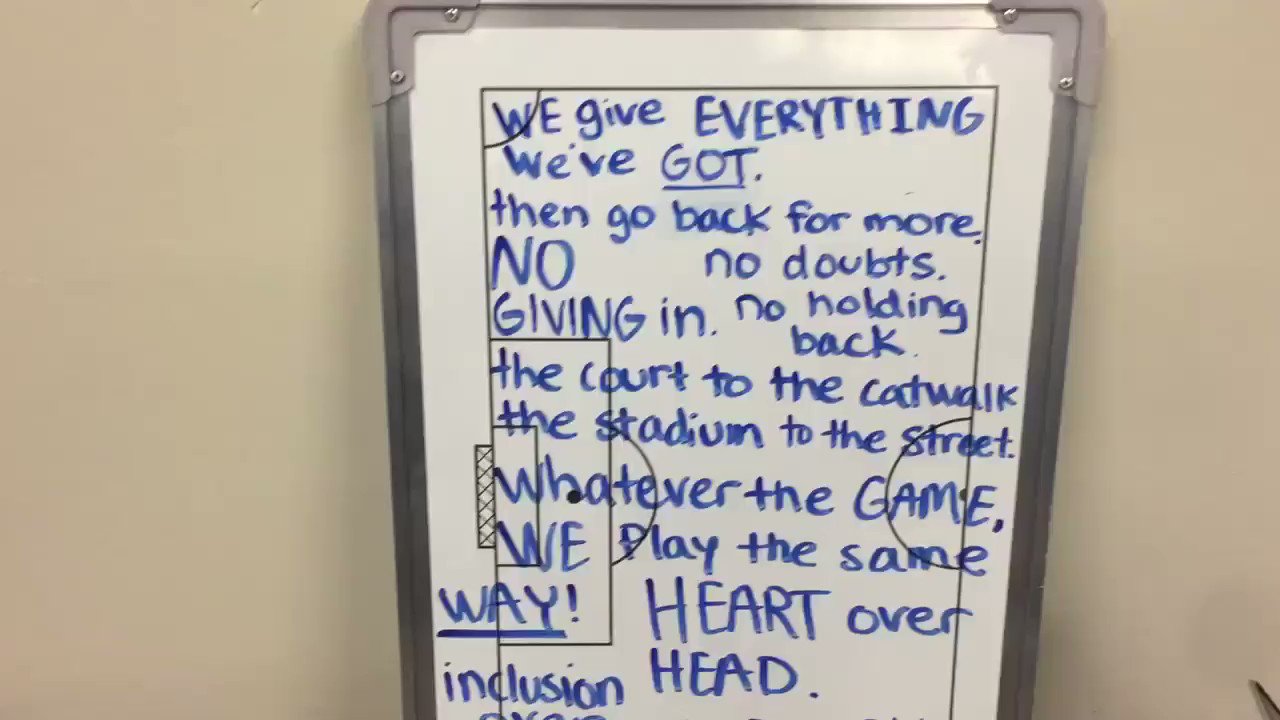 WE give EVERYTHING
we've GOT.
then go back for more.
NO no doubts.
GIVING in. no holding
back.
the court to the catwalk
the stadium to the street.
Whatever the GAME,
WE Play the same
WAY! HEART over
inclusion HEAD.